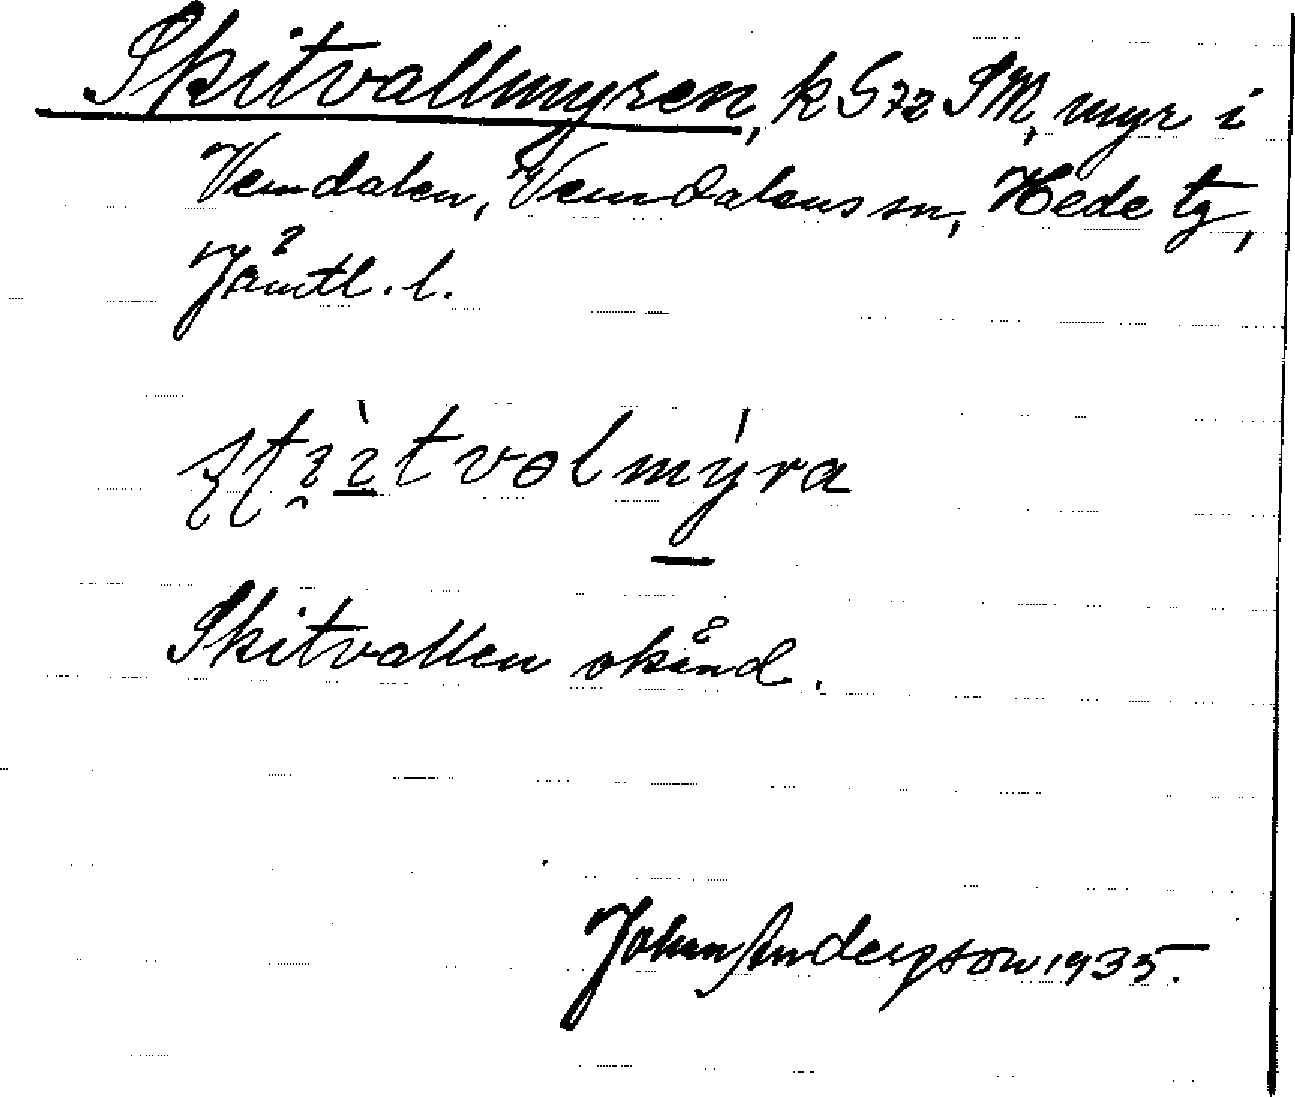 Skitvallmyren, k 572 SM, myr i
Vemdalen, Vemdalens sn, Hede tg,
Jämtl. l.
Skitvallen okänd.
John Anderson 1935.